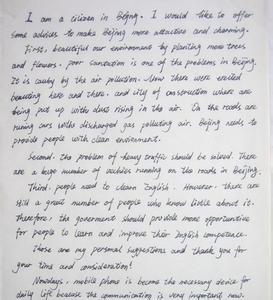 I am a citizen in Beijing. I would like to offer
some advices to make Beijing more attractive and charming.
First, beautiful our environment by planting more trees
and flowers. poor sanitation is one of the problems in Beijing.
It is by the air pollution. Now there were erected
beauting here and there. and city of construction where are
being put up with dust rising in the air. On the roads are
runing cars with discharged gas polluting air. Beijing needs to
provide people with clean enviroment.
Second. the problem of heavy traffic should be solved. There
are a huge number of vechies running on the roads in Beijing.
Third, people need to learn English. However. there are
still a great number of people who know little about it.
therefore, the government should provide more opportunities
for people to learn and improve their English competence.
Those are my personal suggestions and thank you for
your time and consideration!
Nowdays, mobile phone is become the necessary device for
daily life because the communication is very important now.